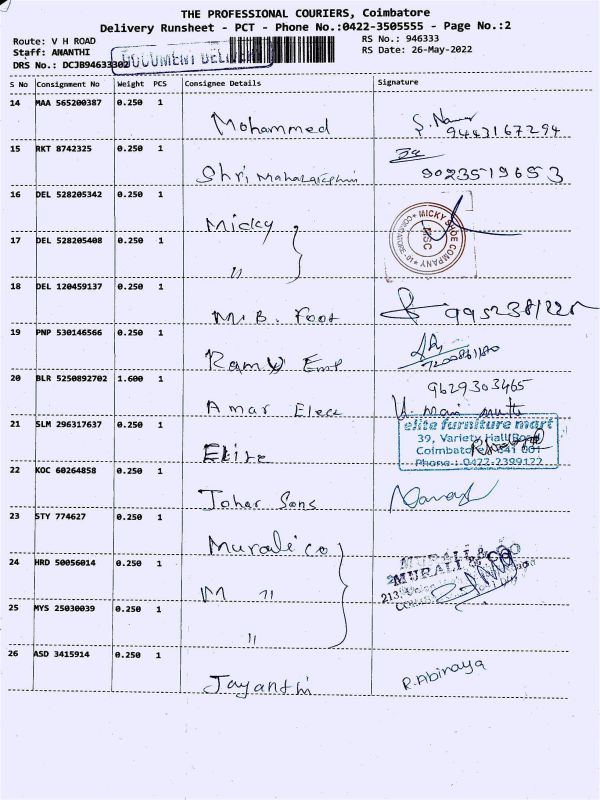 THE PROFESSIONAL COURIERS, Coimbatore
Delivery Runsheet - PCT - Phone No.:0422-3505555 - Page No.:2
Route: V H ROAD RS No.: 946333
Staff: ANANTHI RS Date: 26-May-2022
DRS No.: DCJB94633302 DOCUMENT
S No Consignment No Weight PCS Consignee Details Signature
14 MAA 565200387 0.250 1
Mohammed 9443167294
15 RKT 8742325 0.250 1
Shri 9023519653
16 DEL 528205342 0.250 1
Micky MICKY SHOE COMPANY MSC
17 DEL 528205408 0.250 1
"
18 DEL 120459137 0.250 1
M.B. Foot
19 PNP 530146566 0.250 1
Ramy Emp
20 BLR 5250892702 1.600 1 9629303465
Amar Elece
21 SLM 296317637 0.250 1 elite furniture mart
39, Variety Hall Road
Elite Coimbatore 641 001
Phone : 0422-2399122
22 KOC 60264858 0.250 1
Johar Sons
23 STY 774627 0.250 1
Murali & co
24 HRD 50056014 0.250 1 MURALI & CO
M " 213,
25 MYS 25030039 0.250 1
"
26 ASD 3415914 0.250 1
Jayanthi R.Abinaya